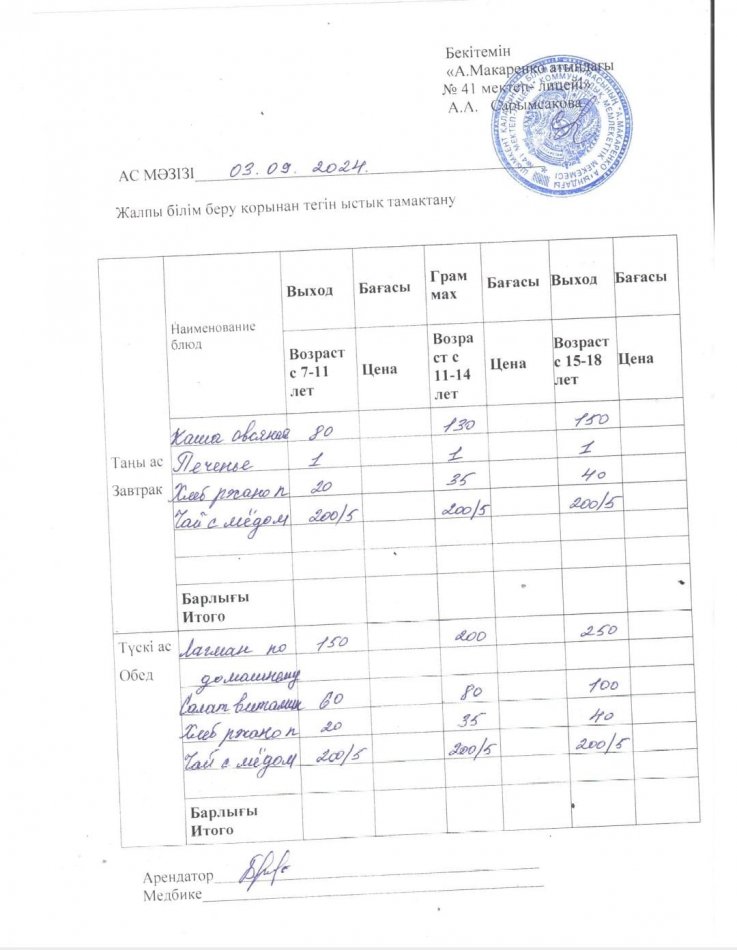 Бекітемін
«А.Макаренко атындағы
№ 41 мектеп- лицейі»
А.А. Сарымсакова
АС МӘЗІЗІ 03.09. 2024.
Жалпы білім беру қорынан тегін ыстық тамақтану
Наименование блюд
Выход Бағасы Грам мах Бағасы Выход Бағасы
Возраст с 7-11 лет Цена Возра ст с 11-14 лет Цена Возраст с 15-18 лет Цена
Таңы ас
Завтрак
Каша овсяная 80 130 150
Печенье 1 1 1
Хлеб ржано п 20 35 40
Чай с мёдом 200/5 200/5 200/5
Барлығы
Итого
Түскі ас
Обед
Лагман по 150 200 250
домашнему
Салат витамин 60 80 100
Хлеб ржано п 20 35 40
Чай с мёдом 200/5 200/5 200/5
Барлығы
Итого
Арендатор
Медбике